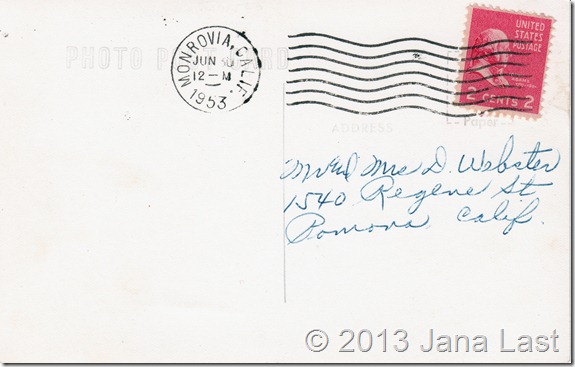 PHOTO POST CARD
MONROVIA, CALIF.
JUN 30
12-M
1953
UNITED
STATES
POSTAGE
2 CENTS 2
ADDRESS
Paper
Mr and Mrs D. Webster
1540 Regene St
Pomona, Calif.
© 2013 Jana Last